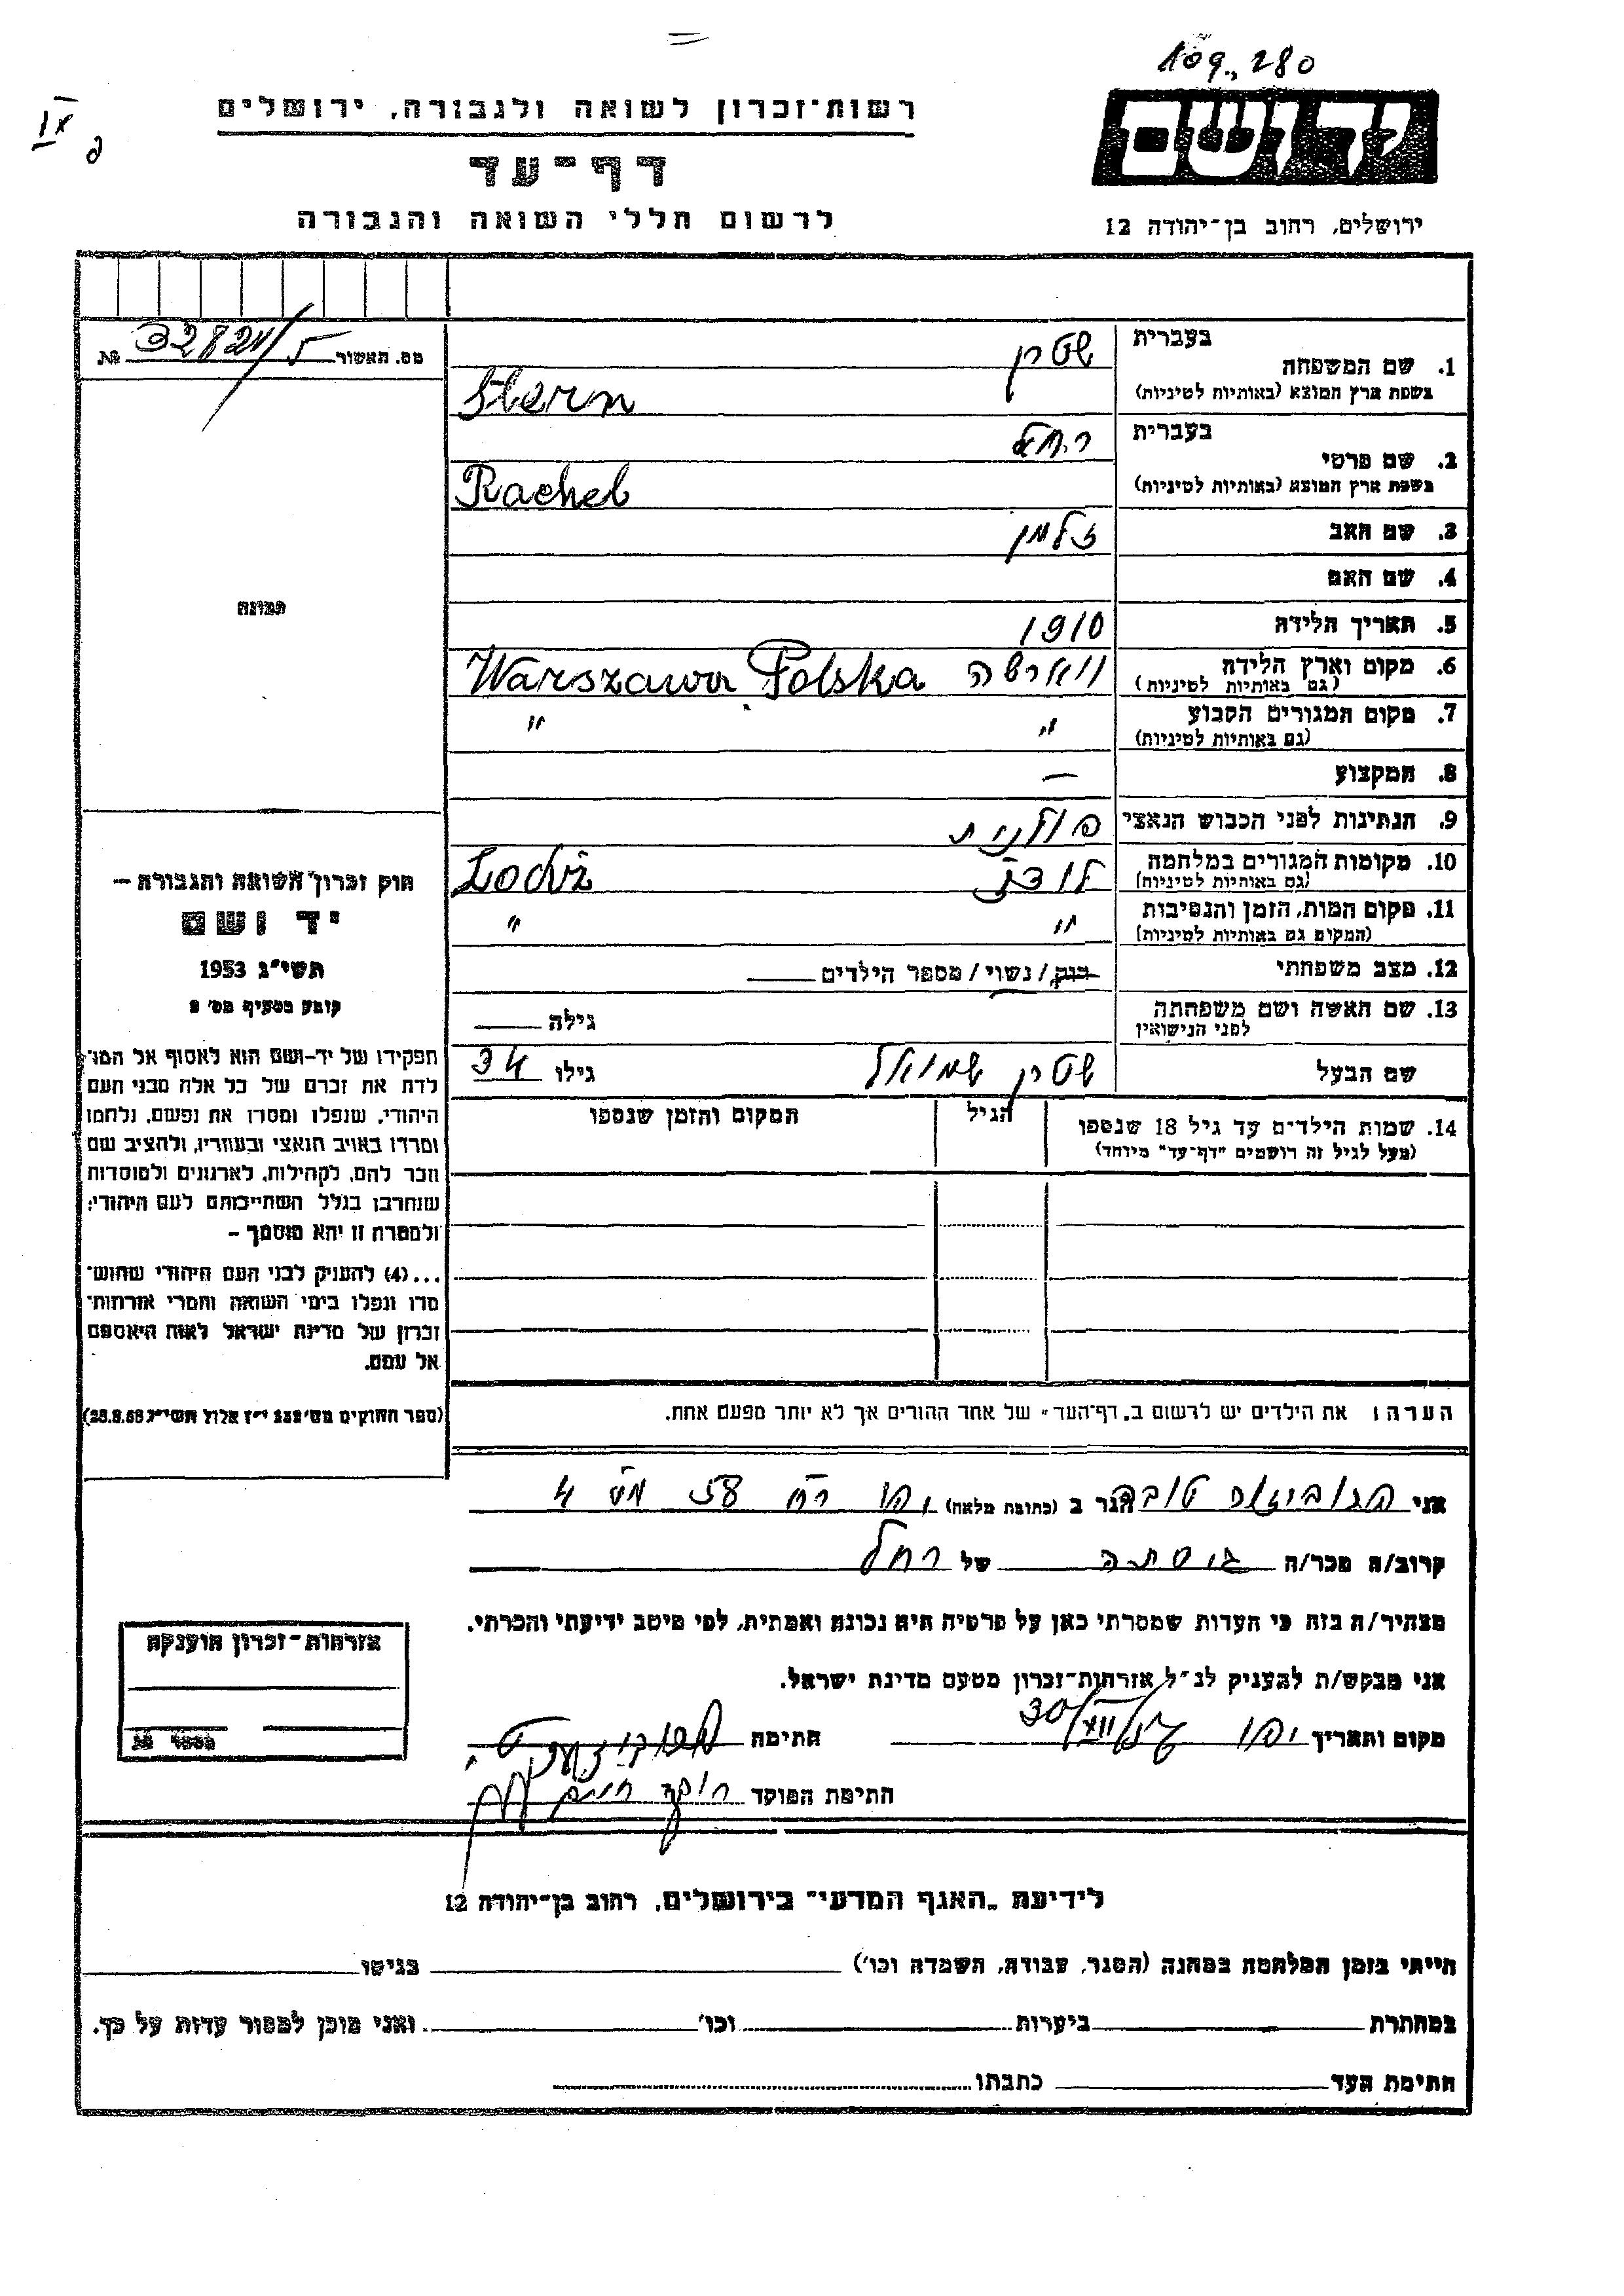 109., 280
IX
רשות־זכרון לשואה ולגבורה, ירושלים
יד ושם
דף־עד
לרשום חללי השואה והגבורה
ירושלים, רחוב בן־יהודה 12
מס. תאשור 5/32821 №
1. שם המשפחה
בעברית שטרן
בשפת ארץ המוצא (באותיות לטיניות) Stern
2. שם פרטי
בעברית רחל
בשפת ארץ המוצא (באותיות לטיניות) Rachel
3. שם האב זלמן
4. שם האם
5. תאריך הלידה 1910
6. מקום וארץ הלידה ווארשה Warszawa Polska
(גם באותיות לטיניות)
7. מקום המגורים הקבוע " "
(גם באותיות לטיניות)
8. המקצוע —
9. הנתינות לפני הכבוש הנאצי פולנית
10. מקומות המגורים במלחמה לודז Lodż
(גם באותיות לטיניות)
11. מקום המות, הזמן והנסיבות " "
(המקום גם באותיות לטיניות)
12. מצב משפחתי רווק / נשוי / מספר הילדים
13. שם האשה ושם משפחתה לפני הנישואין גילה
שם הבעל שטרן שמואל גילו 34
14. שמות הילדים עד גיל 18 שנספו הגיל המקום והזמן שנספו
(מעל לגיל זה רושמים "דף־עד" מיוחד)
הערה: את הילדים יש לרשום ב„דף־העד" של אחד ההורים אך לא יותר מפעם אחת.
תמונה
חוק זכרון השואה והגבורה —
יד ושם
תשי"ג 1953
קובע בסעיף מס' 2
תפקידו של יד־ושם הוא לאסוף אל המו־
לדת את זכרם של כל אלה מבני העם
היהודי, שנפלו ומסרו את נפשם, נלחמו
ומרדו באויב הנאצי ובעוזריו, ולהציב שם
וזכר להם, לקהילות, לארגונים ולמוסדות
שנחרבו בגלל השתייכותם לעם היהודי;
ולמטרה זו יהא מוסמך —
...(4) להעניק לבני העם היהודי שהוש־
מדו ונפלו בימי השואה והמרי אזרחות־
זכרון של מדינת ישראל לאות היאספם
אל עמם.
(ספר החוקים מס' 132 י"ז אלול תשי"ג 28.8.53)
אני טובה הגר ב (כתובת מלאה) יפו רח 58 4
קרוב/ה מכר/ה גיסתה של רחל
מצהיר/ה בזה כי העדות שמסרתי כאן על פרטיה היא נכונה ואמתית, לפי מיטב ידיעתי והכרתי.
אני מבקש/ת להעניק לנ"ל אזרחות־זכרון מטעם מדינת ישראל.
מקום ותאריך יפו 30/XII חתימה
חתימת הפוקד חיים
אזרחות־זכרון הוענקה
מספר №
לידיעת „האגף המדעי" בירושלים, רחוב בן־יהודה 12
הייתי בזמן המלחמה במחנה (הסגר, עבודה, השמדה וכו') בגיטו
במחתרת ביערות וכו' ואני מוכן למסור עדות על כך.
חתימת העד כתבתו